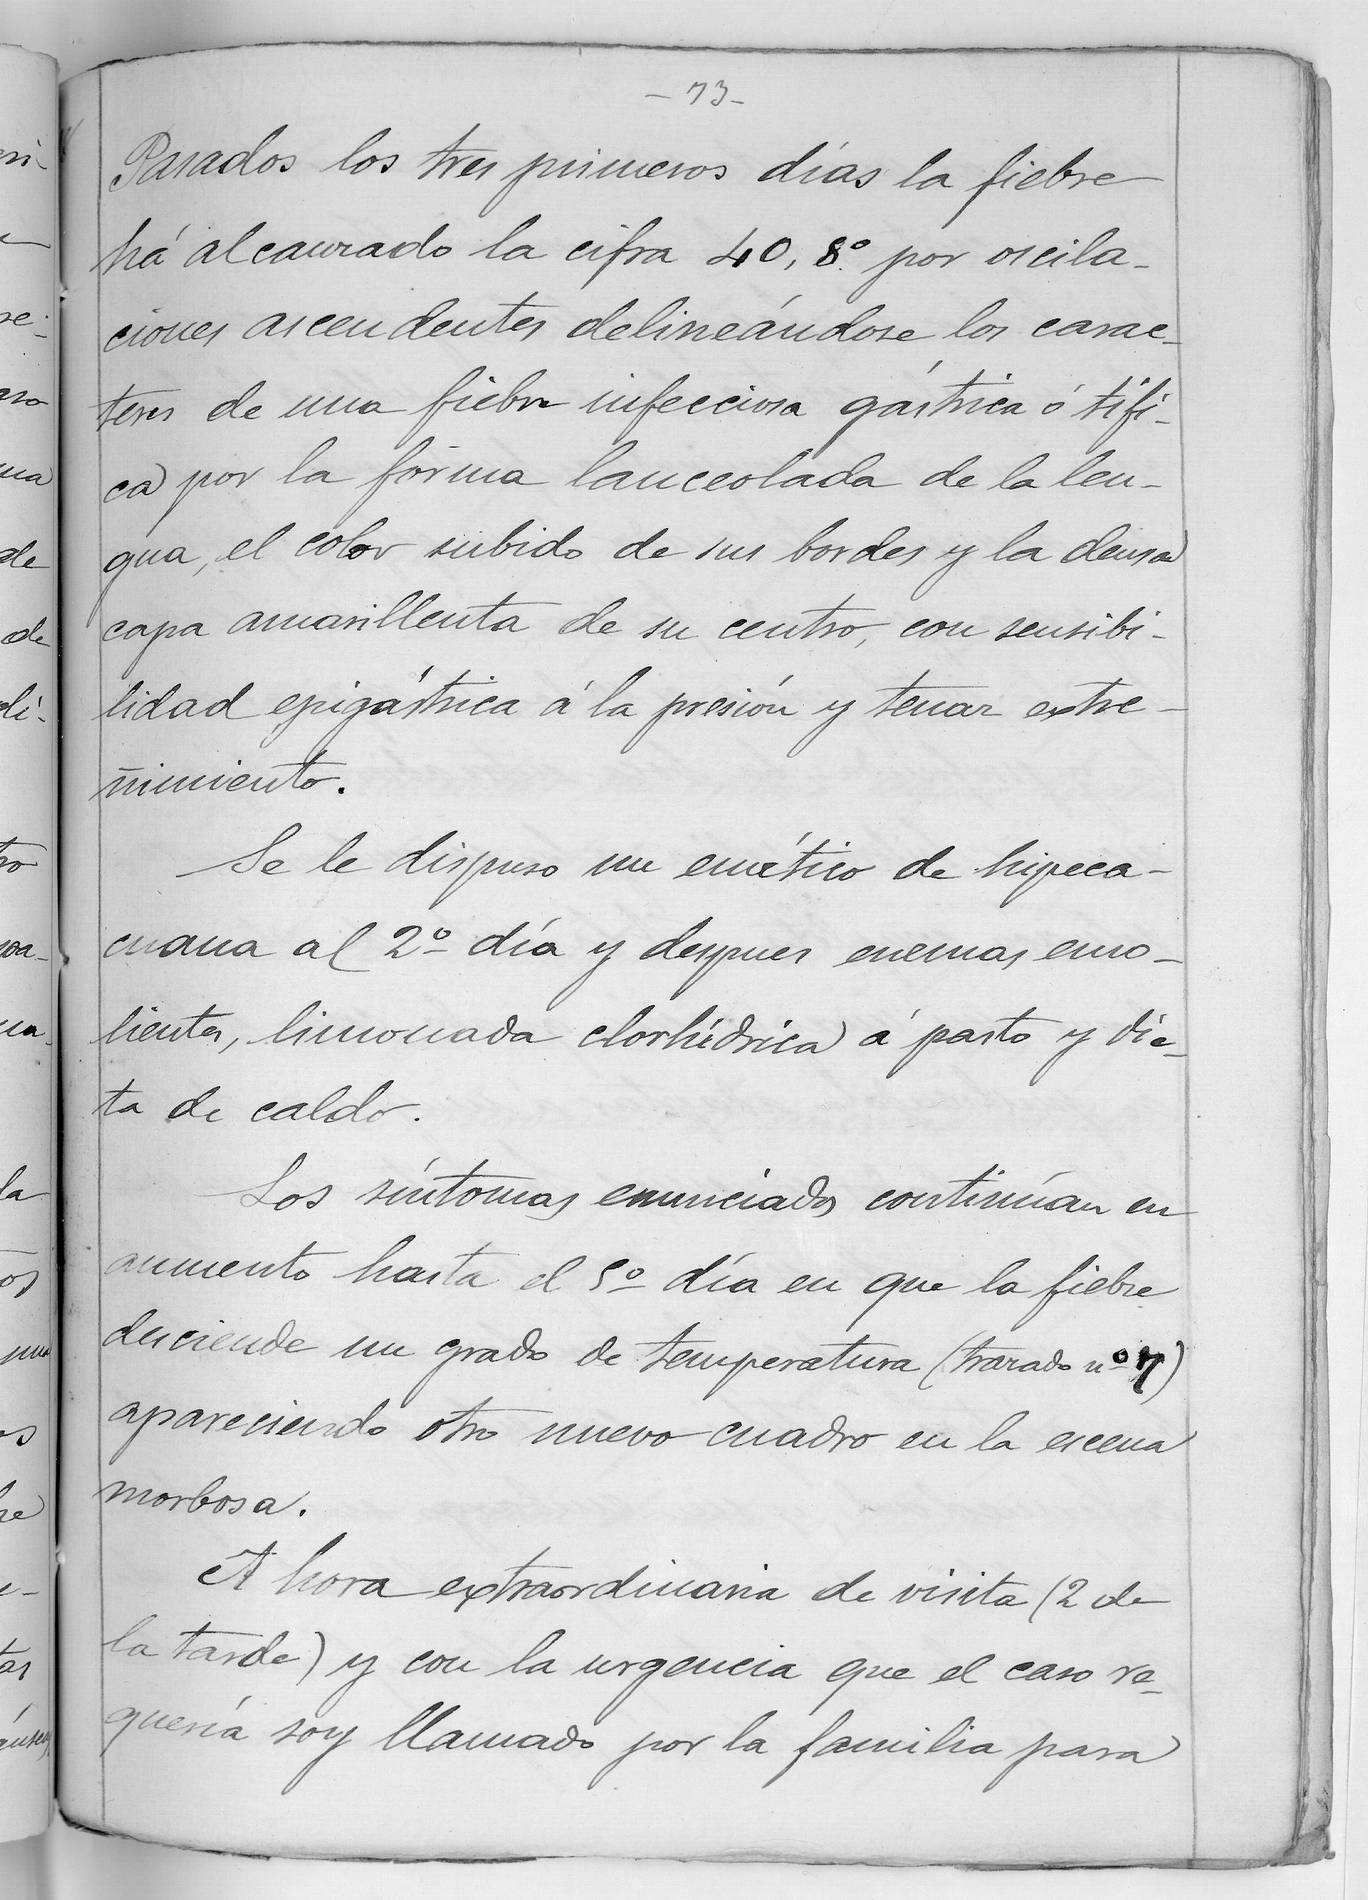 - 73 -
Pasados los tres primeros días la fiebre
há alcanzado la cifra 40,8º por oscila-
ciones ascendentes delineándose los carac-
teres de una fiebre infecciosa gástrica ó tífi-
ca por la forma lanceolada de la len-
gua, el color subido de sus bordes y la densa
capa amarillenta de su centro, con sensibi-
lidad epigástrica á la presión y tenaz extre-
ñimiento.
Se le dispuso un emético de hipeca-
cuana al 2º día y despues enemas emo-
lientes, limonada clorhídrica á pasto y die-
ta de caldo.
Los síntomas enunciados continúan en
aumento hasta el 5º día en que la fiebre
desciende un grado de temperatura (trazado nº 7)
apareciendo otro nuevo cuadro en la escena
morbosa.
A hora extraordinaria de visita (2 de
la tarde) y con la urgencia que el caso re-
quería soy llamado por la familia para